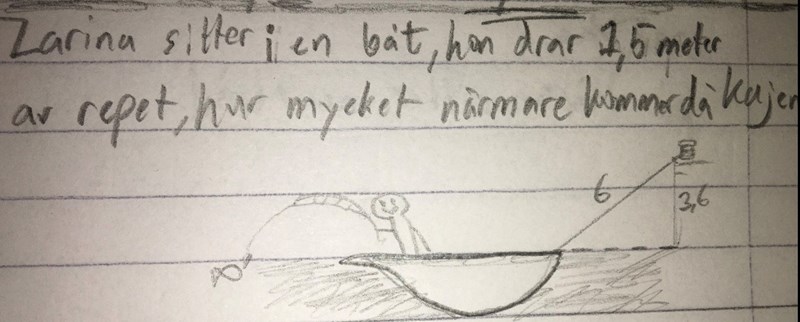 Zarina sitter i en båt, hon drar 1,5 meter
av repet, hur mycket närmare kommer då kajen
6
3,6